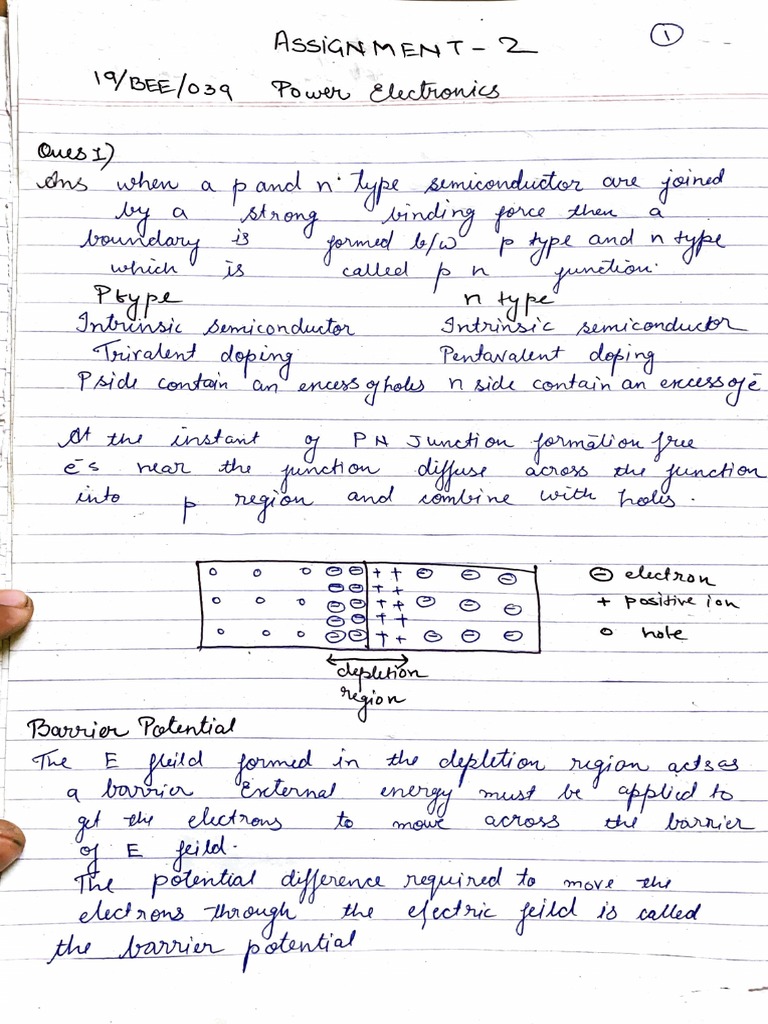 ASSIGNMENT-2
1
19/BEE/039 Power Electronics
Ques 1)
Ans when a p and n type semiconductor are joined
by a strong binding force then a
boundary is formed b/w p type and n type
which is called p n junction.
P type n type
Intrinsic semiconductor Intrinsic semiconductor
Trivalent doping Pentavalent doping
P side contain an excess of holes n side contain an excess of ē
At the instant of PN Junction formation free
ē s near the junction diffuse across the junction
into p region and combine with holes.
⊖ electron
+ positive ion
o hole
depletion
region
Barrier Potential
The E feild formed in the depletion region acts as
a barrier External energy must be applied to
get the electrons to move across the barrier
of E feild.
The potential difference required to move the
electrons through the electric feild is called
the barrier potential